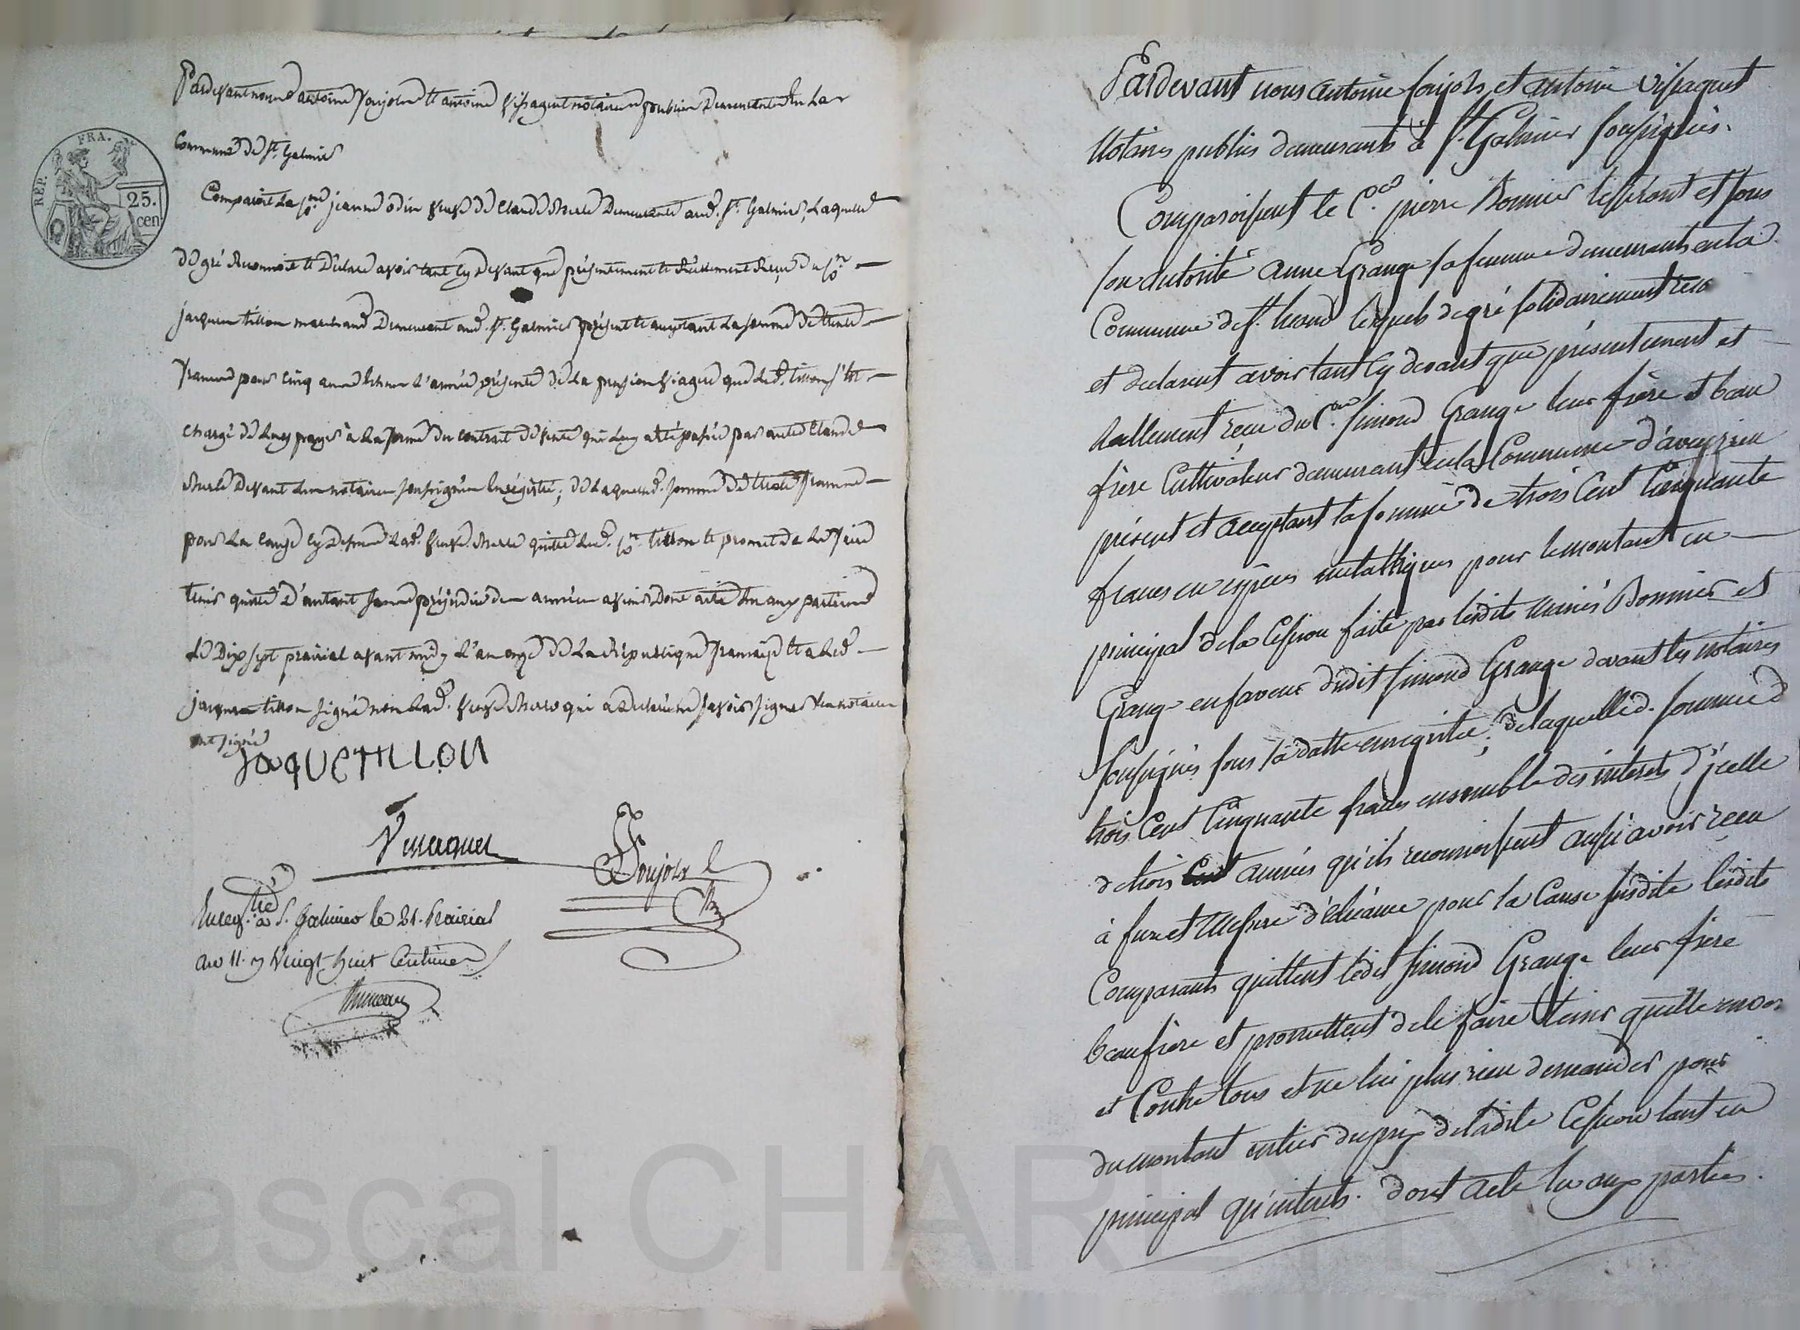 Pardevant nous antoine Poujols et antoine Vissaguet notaires publics Demeurants En La
Commune de St. Galmier
Comparoit La Cne jeanne odin veuve de Claude Merle Demeurante aud. St. Galmier Laquelle
de gré Reconnoit et Déclare avoir tant cy devant que présentement et Réellement Reçu du Con
jacques tillon marchand Demeurant aud. St. Galmier présent et acceptant La somme de trente
francs pour cinq années l'année présente de La pension viagere que led. tillon s'est
chargé de Luy payer à La forme du contrat de vente qui Luy a été passée par led Claude
Merle Devant Les notaires soussignés Enregistré; de Laquelle somme de trente francs
pour La cause cy dessus Lad. veuve Merle quitte Led. Con tillon et promet de Le faire
tenir quitte d'autant sans préjudice des années a venir Dont acte Lu aux parties
Le Dix sept prairial avant midy L'an onze de La République française et a Led
jacques tillon signé non Lad. veuve Merle qui a Déclaré ne savoir signer Les notaires
ont signé
jaqUeTILLON
Vissaguet
Poujols
Enregtré a St. Galmier le 21. Prairial
an 11. Vingt huit Centimes
REP. FRA.
25. cen
Pardevant nous antoine poujols et antoine vissaguet
Notaires publics demeurants à St. Galmier soussignés.
Comparoissent le Cen pierre Bonnier et sous
son autorité anne Grange sa femme demeurants en la
Commune de St. lesquels de gré solidairement
et déclarent avoir tant cy devant que présentement et
Réellement reçu du Cen simond Grange leur frère et beau
frère Cultivateur demeurant en la Commune d'aveyzieu
présent et acceptant la somme de trois Cent Cinquante
francs en espèces métalliques pour le montant en
principal de la Cession faite par lesdits mariés Bonnier et
Grange en faveur dudit simond Grange devant les notaires
soussignés sous sa datte enregistrée; de laquelled. somme de
trois Cent Cinquante francs ensemble des interets d'jcelle
de trois années qu'ils reconnoissent aussi avoir reçu
à fur et Mesure d'échéance pour la Cause susdite lesdits
Comparants quittent ledit simond Grange leur frère
beaufrère et promettent de le faire tenir quitte envers
et Contre tous et ne lui plus rien demander pour
du montant entier du prix de ladite Cession tant en
principal qu'interets. dont acte lu aux parties.
Pascal CHARE